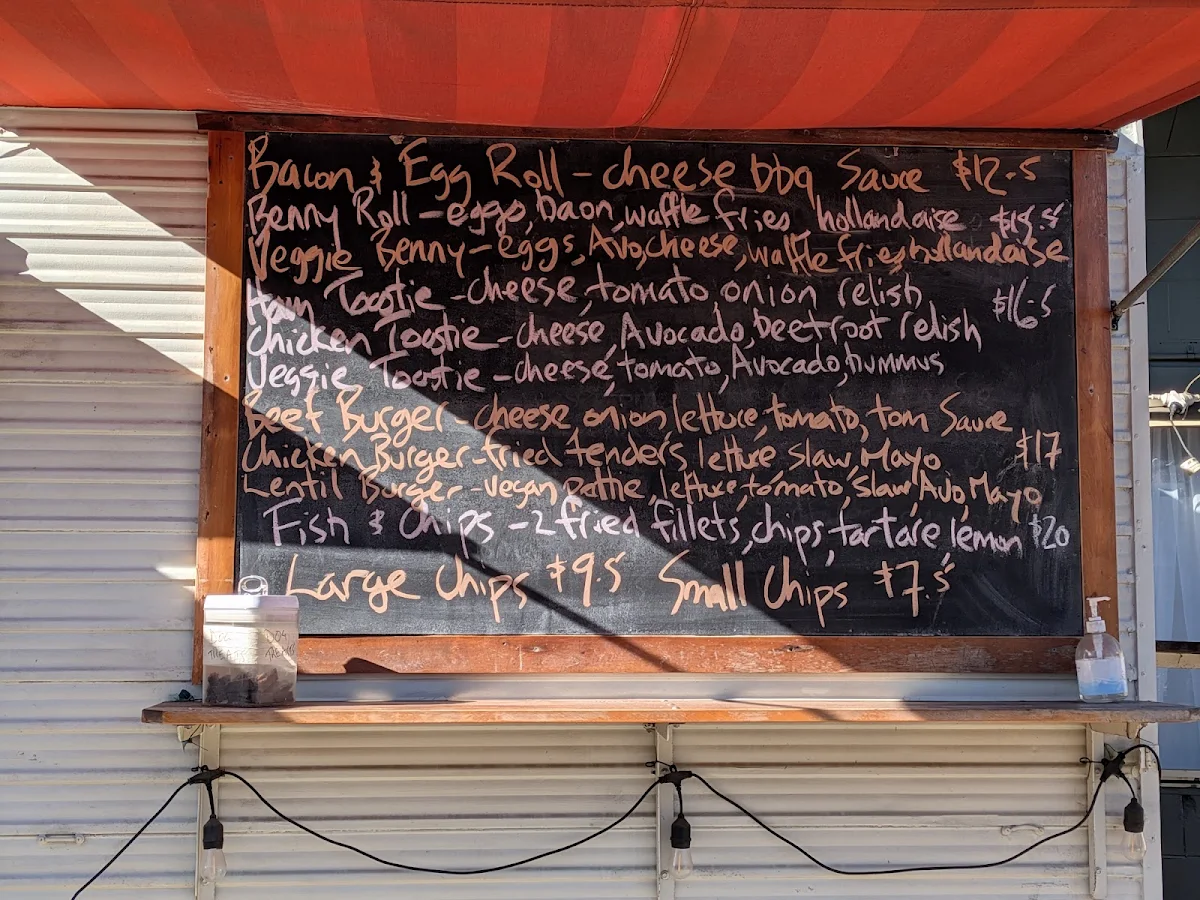 Bacon & Egg Roll - cheese bbq Sauce $12.5
Benny Roll - eggs, baon, waffle fries hollandaise
Veggie Benny - eggs, Avo, cheese, waffle fries, hollandaise
Ham Tootie - cheese, tomato, onion relish $16.5
Chicken Tootie - cheese, Avocado, beetroot relish
Veggie Tootie - cheese, tomato, Avocado, hummus
Beef Burger cheese onion lettuce, tomato, tom Sauce
Chicken Burger - fried tenders lettuce slaw, Mayo $17
Lentil Burger - vegan pattie, lettuce, tomato, slaw, Avo, Mayo
Fish & Chips - 2 fried fillets, chips, tartare lemon $20
Large Chips $9.5 Small Chips $7.5
DOG
TREATS